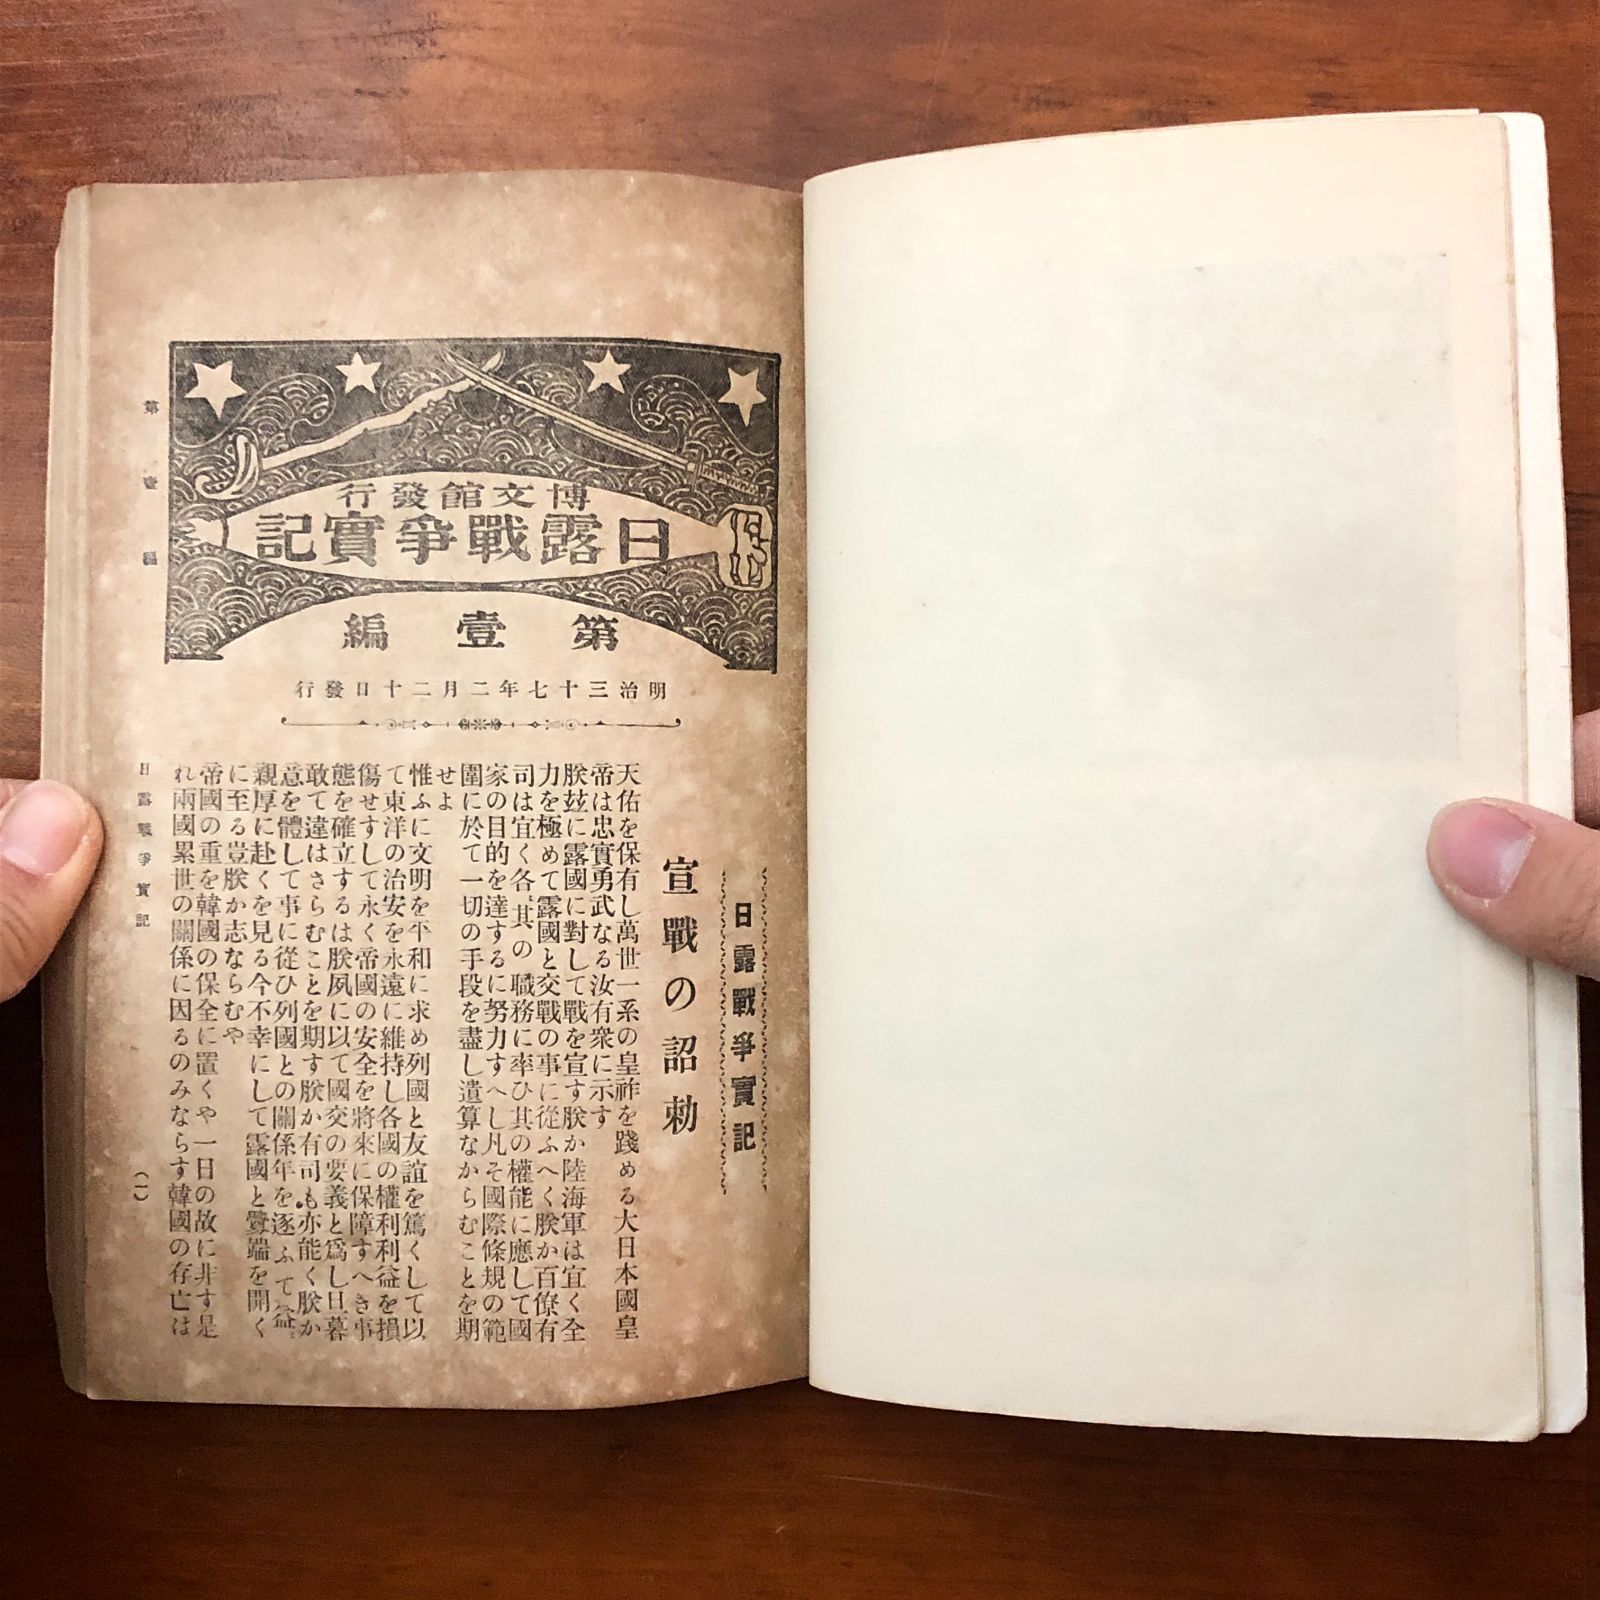 博文館發行
日露戰爭實記
第壹編
明治三十七年二月二十日發行
日露戰爭實記
宣戰の詔勅
天佑を保有し萬世一系の皇祚を踐める大日本國皇
帝は忠實勇武なる汝有衆に示す
朕玆に露國に對して戰を宣す朕か陸海軍は宜く全
力を極めて露國と交戰の事に從ふへく朕か百僚有
司は宜く各〻其の職務に率ひ其の權能に應して國
家の目的を達するに努力すへし凡そ國際條規の範
圍に於て一切の手段を盡し遺算なからむことを期
せよ
惟ふに文明を平和に求め列國と友誼を篤くして以
て東洋の治安を永遠に維持し各國の權利利益を損
傷せすして永く帝國の安全を將來に保障すへき事
態を確立するは朕夙に以て國交の要義と爲し旦暮
敢て違はさらむことを期す朕か有司も亦能く朕か
意を體して事に從ひ列國との關係年を逐ふて益〻
親厚に赴くを見る今不幸にして露國と釁端を開く
に至る豈朕か志ならむや
帝國の重を韓國の保全に置くや一日の故に非す是
れ兩國累世の關係に因るのみならす韓國の存亡は
第壹編
日露戰爭實記
(一)